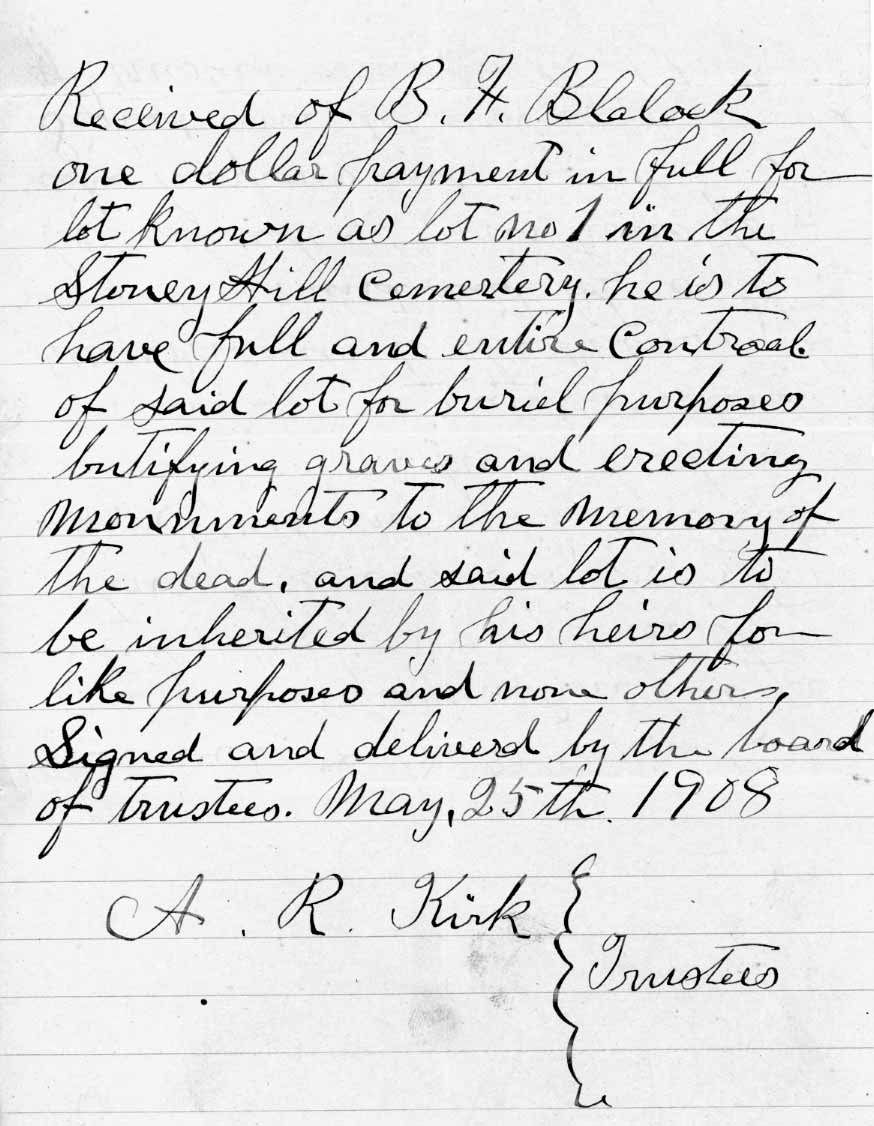 Received of B. F. Blalock
one dollar payment in full for
lot known as lot no 1 in the
Stoney Hill Cemertery. he is to
have full and entire Controal
of said lot for buriel purposes
butifying graves and erecting
Monnments to the Memory of
the dead, and said lot is to
be inherited by his heirs for
like purposes and none others,
Signed and deliverd by the board
of trustees. May, 25th. 1908
A. R. Kirk
Trustees